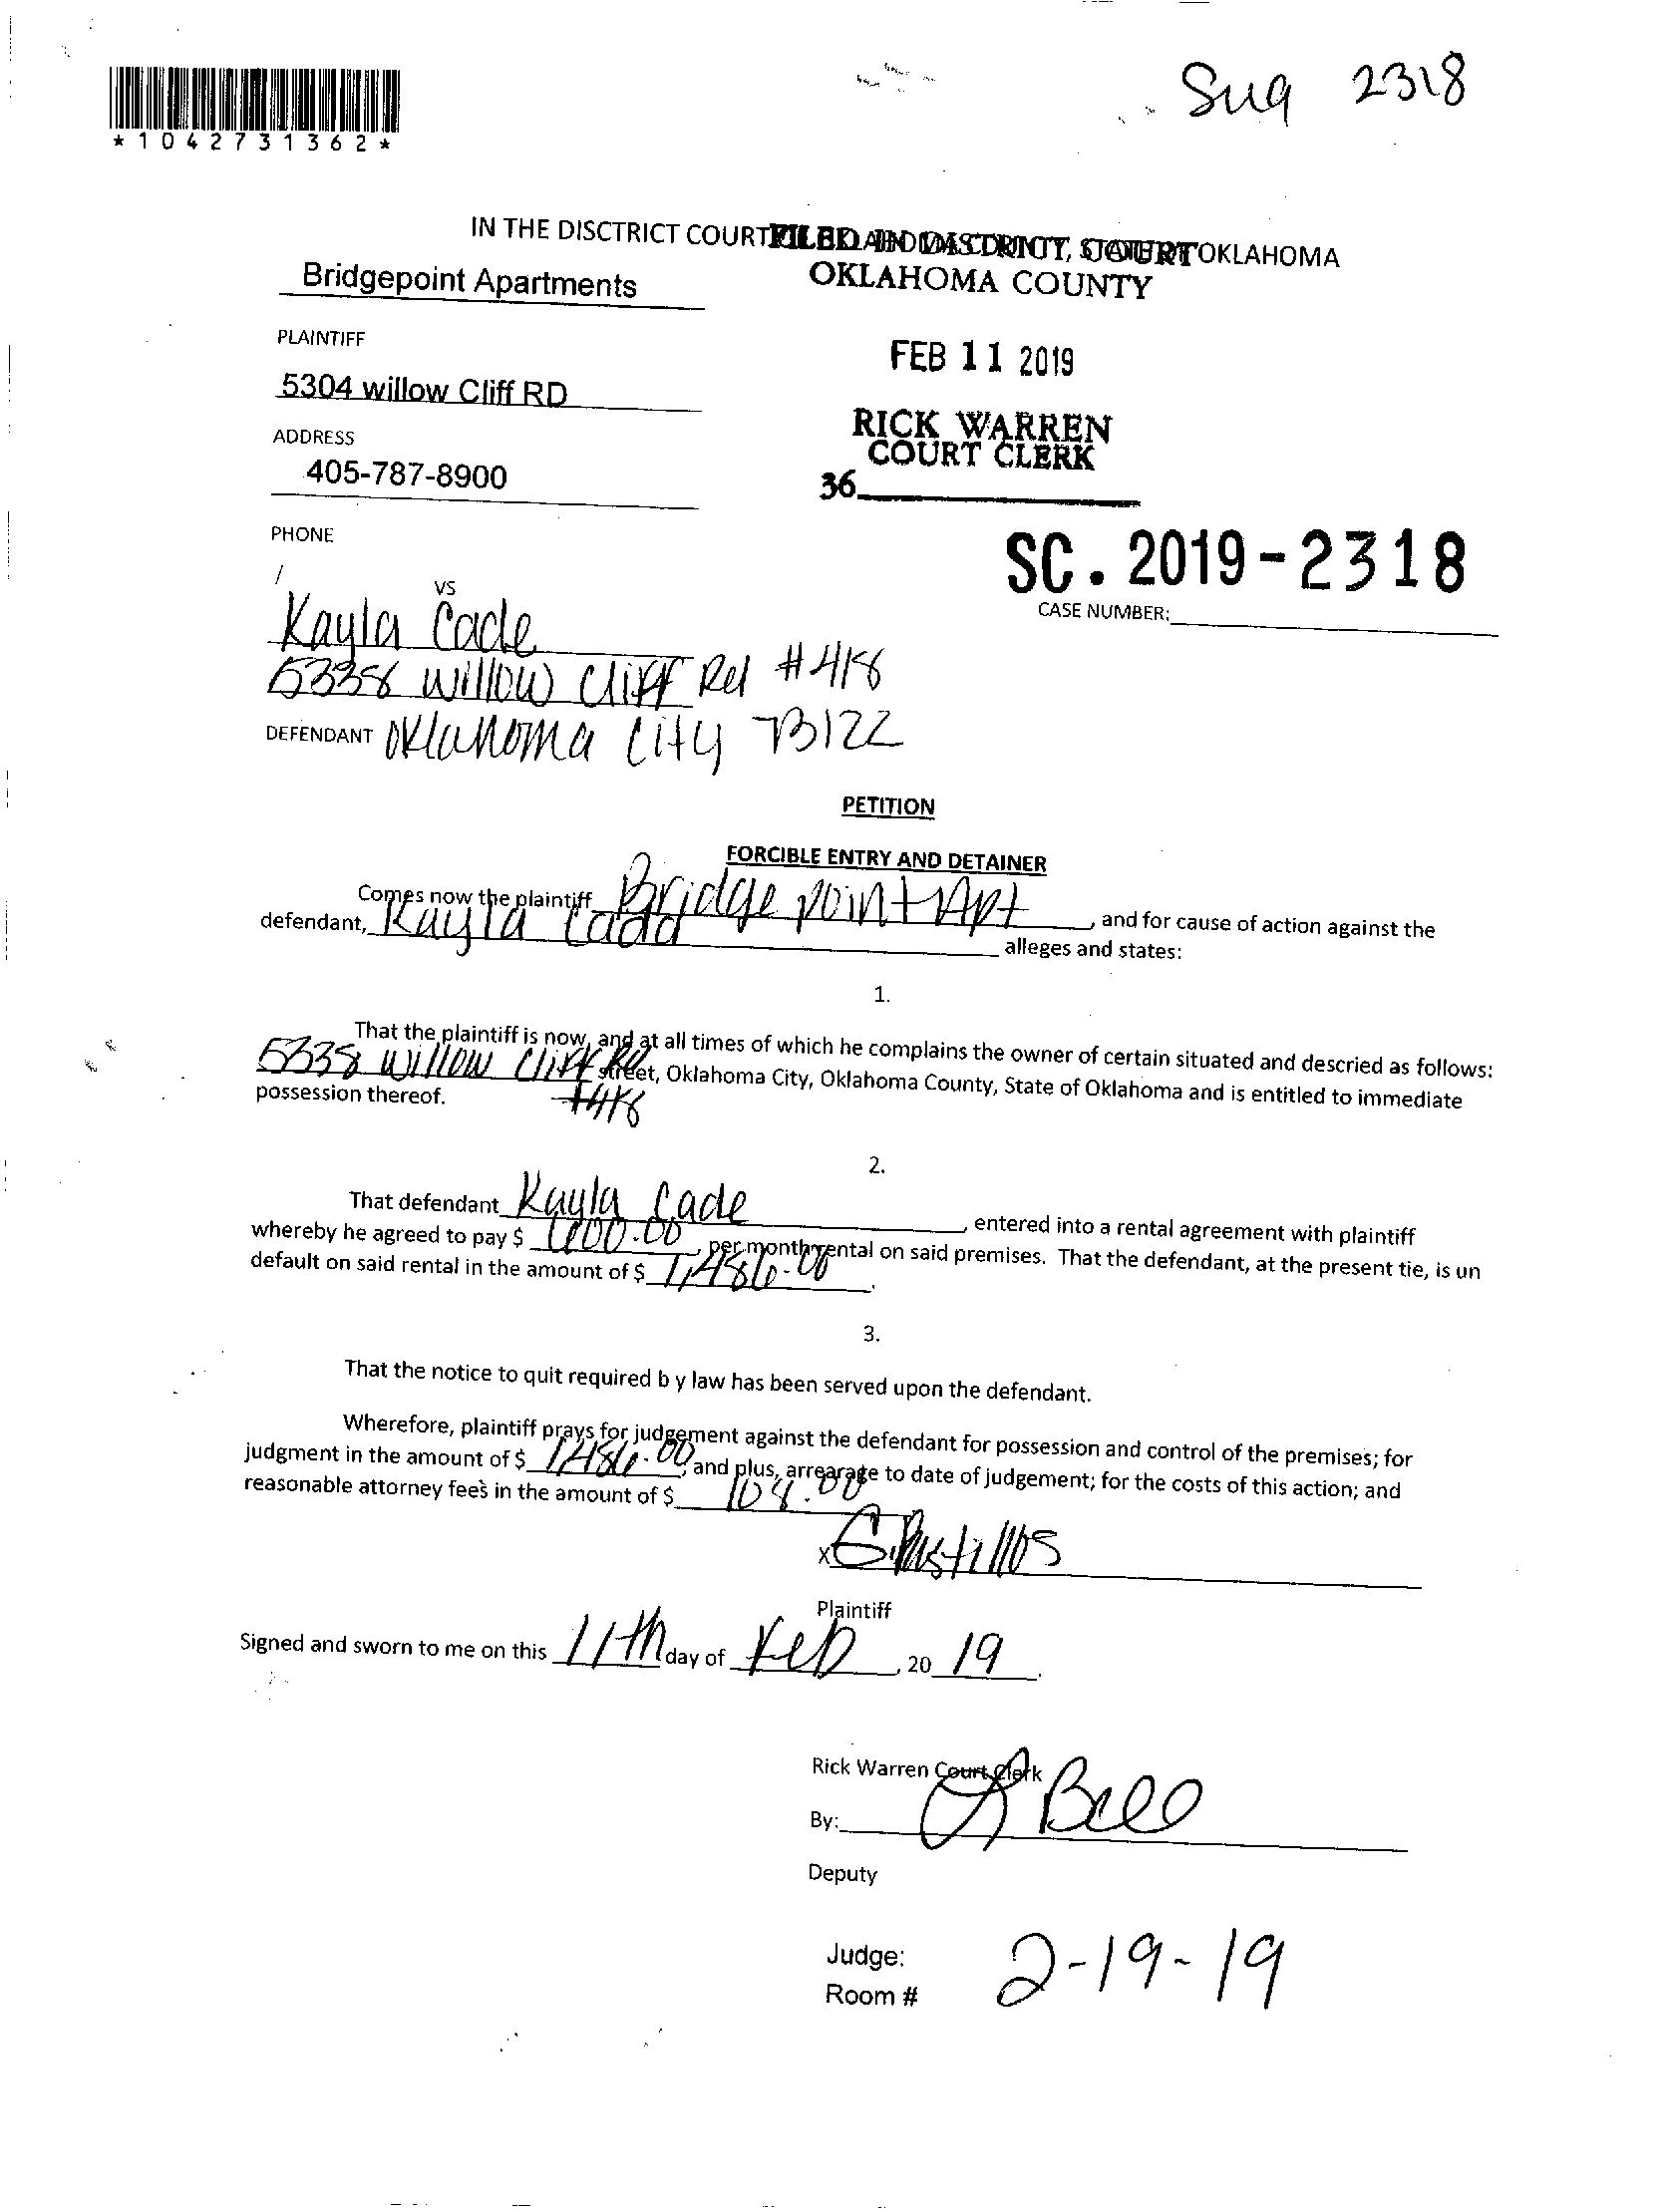 *1042731362*
Sug 2318
IN THE DISCTRICT COURT OKLAHOMA
FILED IN DISTRICT COURT
OKLAHOMA COUNTY
Bridgepoint Apartments
PLAINTIFF
FEB 11 2019
5304 willow Cliff RD
RICK WARREN
COURT CLERK
ADDRESS
405-787-8900
36
PHONE
SC. 2019-2318
CASE NUMBER:
/
VS
Kayla Cade
5338 Willow Cliff Rd #418
DEFENDANT Oklahoma City 73122
PETITION
FORCIBLE ENTRY AND DETAINER
Comes now the plaintiff Bridge point Apt, and for cause of action against the
defendant, Kayla Cadd alleges and states:
1.
That the plaintiff is now, and at all times of which he complains the owner of certain situated and descried as follows:
5338 Willow Cliff Rd street, Oklahoma City, Oklahoma County, State of Oklahoma and is entitled to immediate
possession thereof. #418
2.
That defendant Kayla Cade, entered into a rental agreement with plaintiff
whereby he agreed to pay $ , per month rental on said premises. That the defendant, at the present tie, is un
default on said rental in the amount of $ 1,486.00.
3.
That the notice to quit required b y law has been served upon the defendant.
Wherefore, plaintiff prays for judgement against the defendant for possession and control of the premises; for
judgment in the amount of $ 1,486.00, and plus, arrearage to date of judgement; for the costs of this action; and
reasonable attorney fees in the amount of $
x
Plaintiff
Signed and sworn to me on this 11th day of Feb, 20 19.
Rick Warren Court Clerk
By: Bell
Deputy
Judge:
2-19-19
Room #